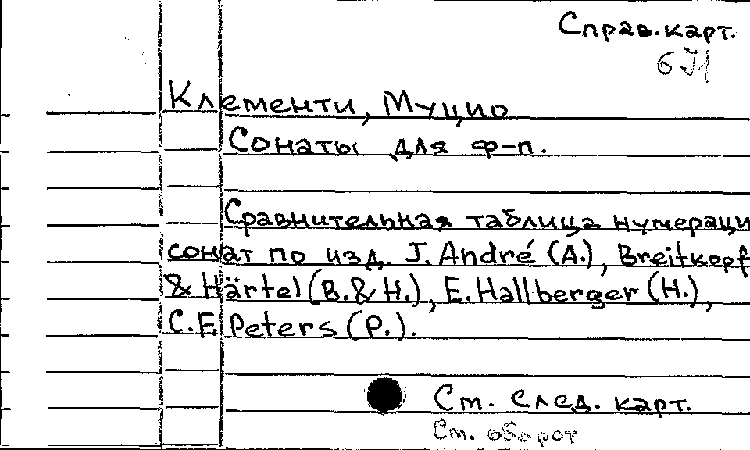 Справ. карт.
Клементи, Муцио
Сонаты для ф-п.
Сравнительная таблица нумераци
сонат по изд. J. André (A.), Breitkopf
& Härtel (B. & H.), E. Hallberger (H.),
C. F. Peters (P.).
См. след. карт.
См. оборот